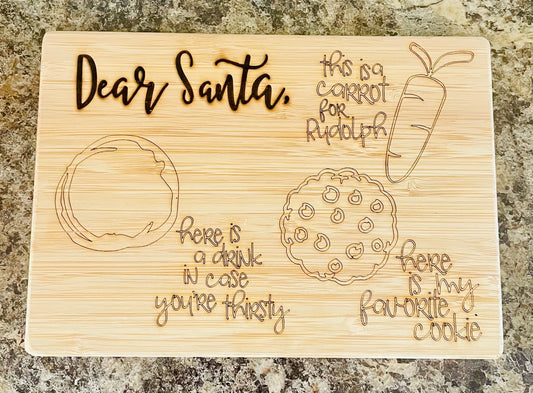 Dear Santa,
this is a
carrot
for
Rudolph
here is
a drink
in case
you're thirsty
here
is my
favorite
cookie